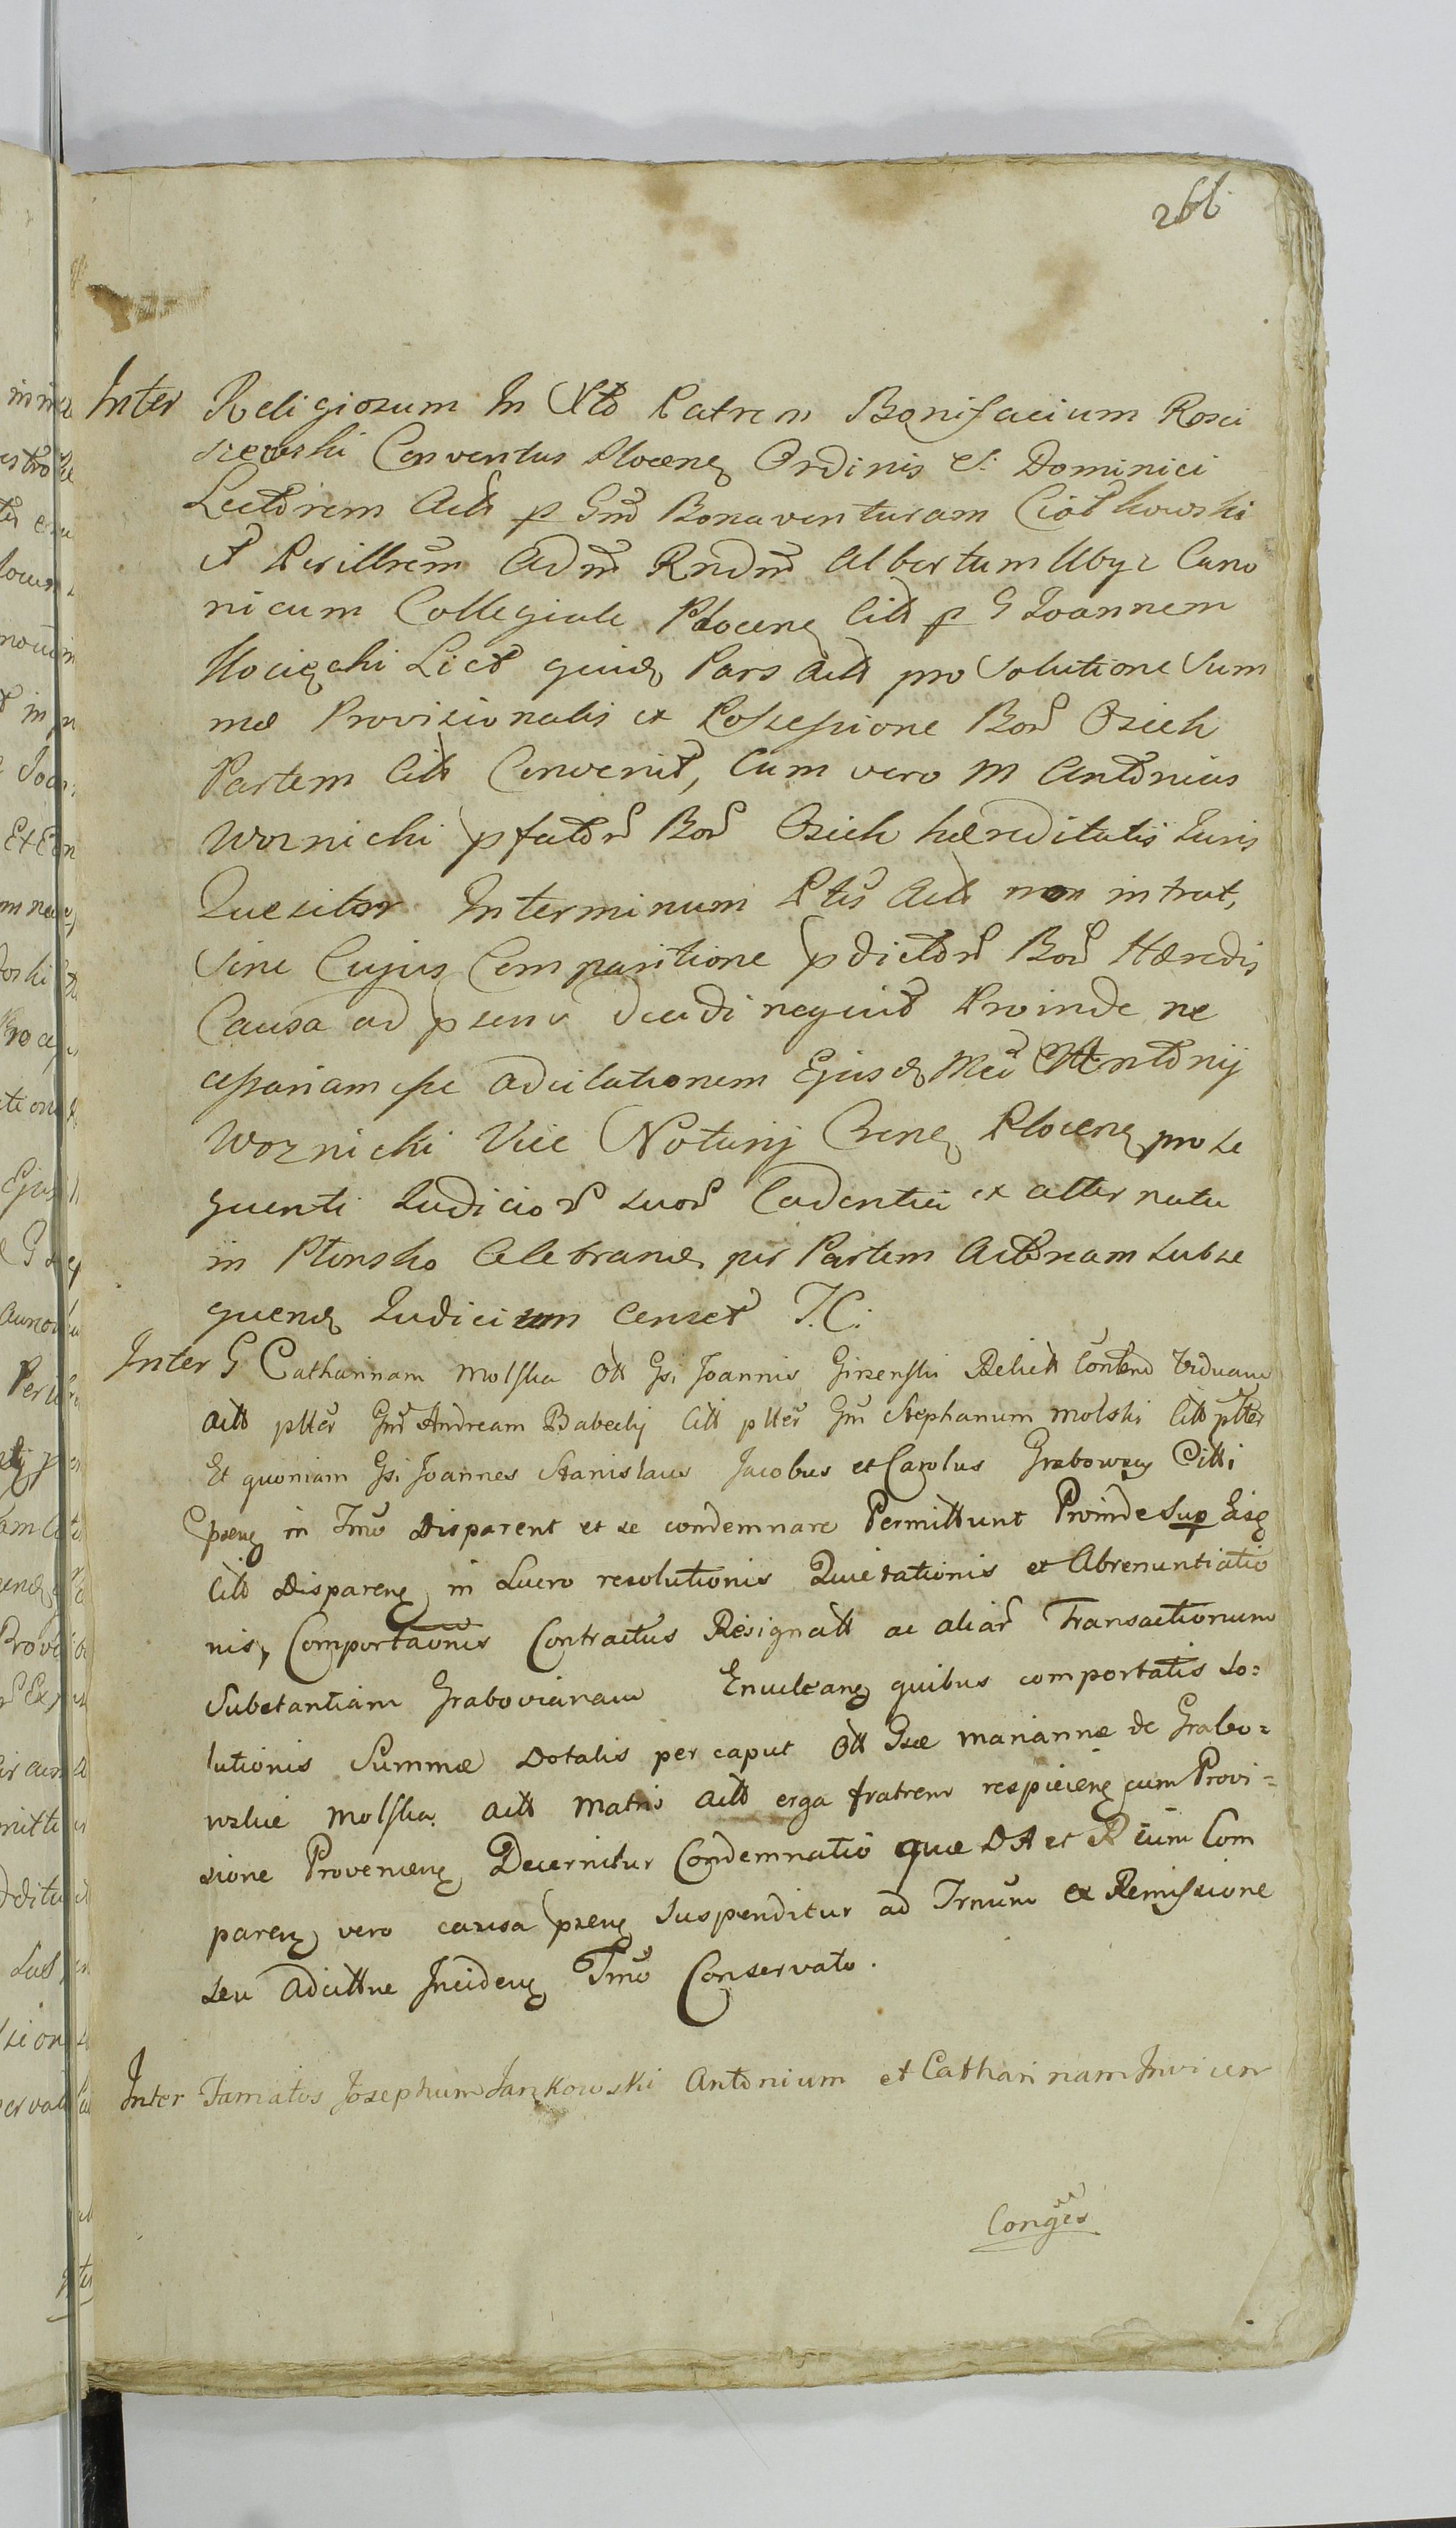 266
Inter Religiosum In Xto Patrem Bonifacium Rosci
szewski Conventus Plocens Ordinis S: Dominici
Lectorem Actt p Gnd Bonaventuram Ciółkowski
et Perillrem Adm Rndm Albertum Ubyz Cano
nicum Collegiate Plocens Citt p G Joannem
Kocięcki Licet quide Pars Actt pro Solutione Sum
mæ Provisionalis ex Possessione Bor Osiek
Partem Citt Convenit, Cum vero M Antonius
Woznicki pfator Bor Osiek hæreditatis Iuris
Quesitor In terminum Ptis Actt non intrat,
Sine Cujus Comparitione pdictor Bor Hæredis
Causa ad psens decidi nequit Proinde ne
cessariam esse adcitationem Ejusd Mci Antonij
Woznicki Vice Notarij Plocens pro se
quenti Iudicior suor Cadentia ex alternata
in Plonsko Celebrand per Partem Actoream subse
quend Iudicium Censet T.C.
Inter G Catharinam Molska Ott Gsi Joannis Girzenski Relictt Viduam
Actt ptter Gnd Andream Babecki Citt ptter Gm Stephanum Molski Citt ptter
Et quoniam Gsi Joannes Stanislaus Jacobus et Carolus Grabowscy Citti
psens in Tmo Disparent et se condemnare Permittunt Proinde Sup Eisd
Citt Disparens in Lucro resolutionis Quietationis et Abrenuntiatio
nis, Comportaonis Contractus Resignatt ac aliar Transactionum
Substantiam Grabovianam quibus comportatis so=
lutionis Summæ Dotalis per caput Ott Gsæ Mariannæ de Grabo=
wskie Molska Actt Matris Actt erga fratrem respiciens cum Provi=
sione Proveniens Decernitur Condemnatio quæ DA et R cum Com
parens vero causa psens suspenditur ad Trnum ex Remissione
seu Adcittne Incidens Tmo Conservato.
Inter Famatos Josephum Jankowski Antonium et Catharinam Invicem
Conges